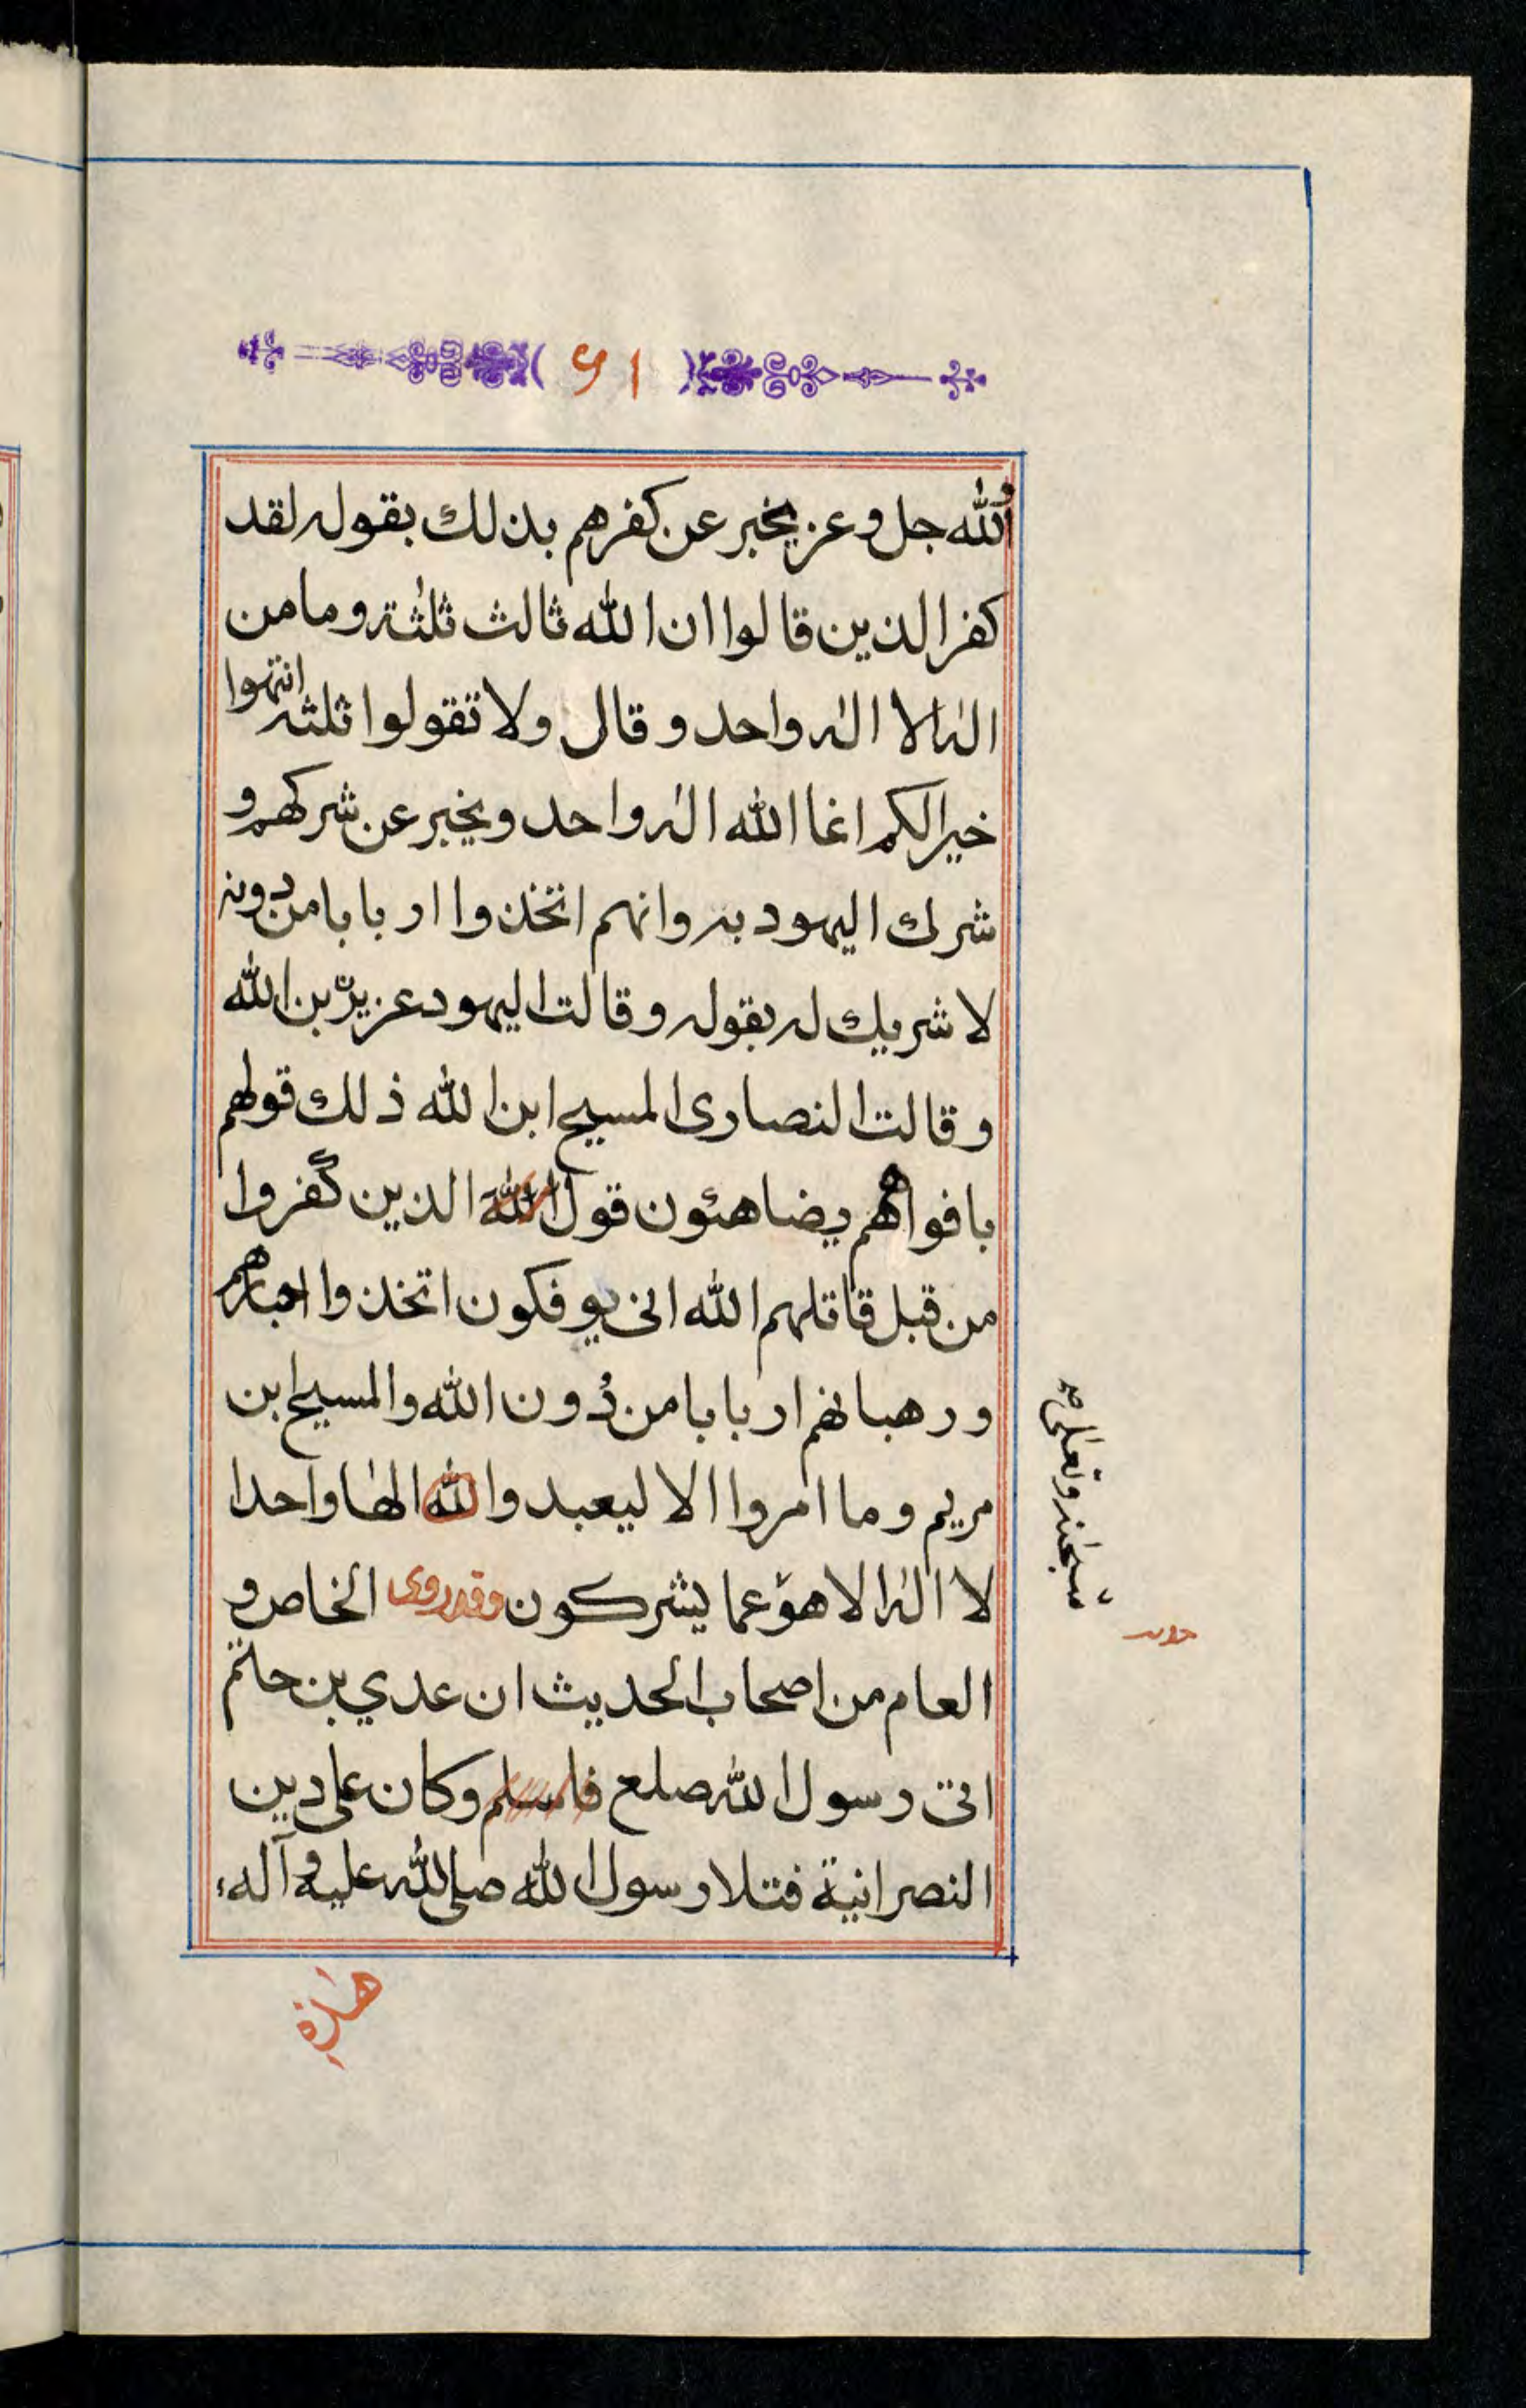 ۹۱
والله جل وعز يخبر عن كفرهم بذلك بقوله لقد
كفر الذين قالوا ان الله ثالث ثلثة وما من
اله الا اله واحد وقال ولا تقولوا ثلثه انتهوا
خيرا لكم انما الله اله واحد ويخبر عن شركهم و
شرك اليهود به وانهم اتخذوا اربابا من دونه
لا شريك له بقوله وقالت اليهود عزير بن الله
وقالت النصارى المسيح ابن الله ذلك قولهم
بافواههم يضاهئون قول الله الذين كفروا
من قبل قاتلهم الله انى يوفكون اتخذوا احبارهم
ورهبانهم اربابا من دون الله والمسيح ابن
مريم وما امروا الا ليعبدوا الله الها واحدا
لا اله الا هو عما يشركون وقد روى الخاص و
سبحنه وتعلى صح
العام من اصحاب الحديث ان عدي بن حاتم
اتى رسول الله صلع فاسلم وكان على دين
النصرانية فتلا رسول الله صلى الله عليه وآله
هذه